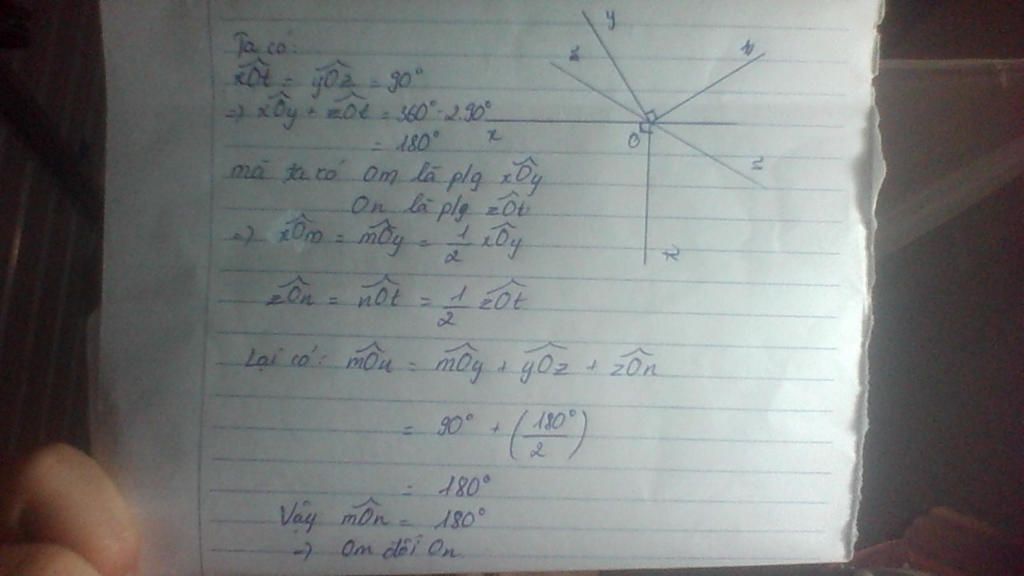 Ta có:
xOt = yOz = 90°
=> xOy + zOt = 360° - 2.90°
= 180°
mà ta có Om là p/g xOy
On là p/g zOt
=> xOm = mOy = 1/2 xOy
zOn = nOt = 1/2 zOt
Lại có: mOn = mOy + yOz + zOn
= 90° + (180°/2)
= 180°
Vậy mOn = 180°
=> Om đối On
y
z
x
O
z